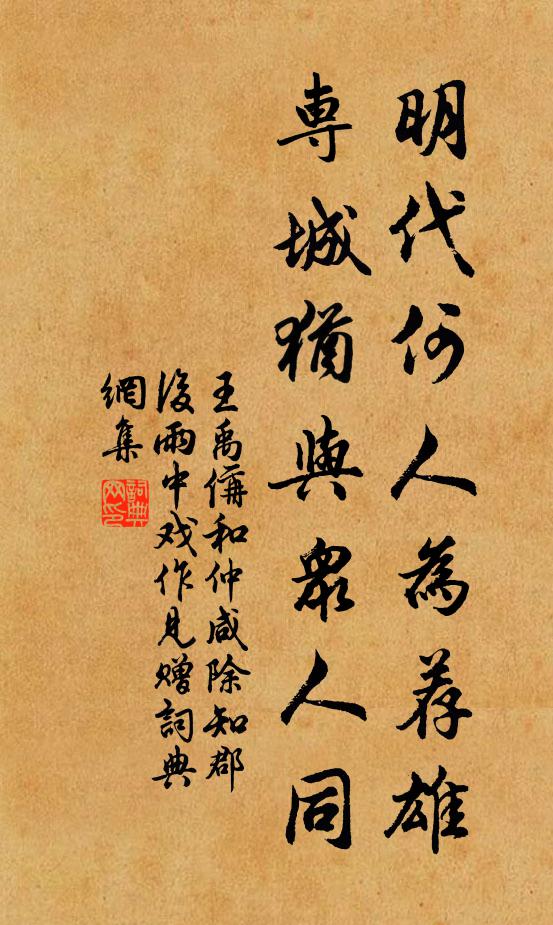 明代何人為荐雄
専城猶與眾人同
王禹偁和仲咸除知郡
後雨中戏作見赠詞典
網集
詞典
网印